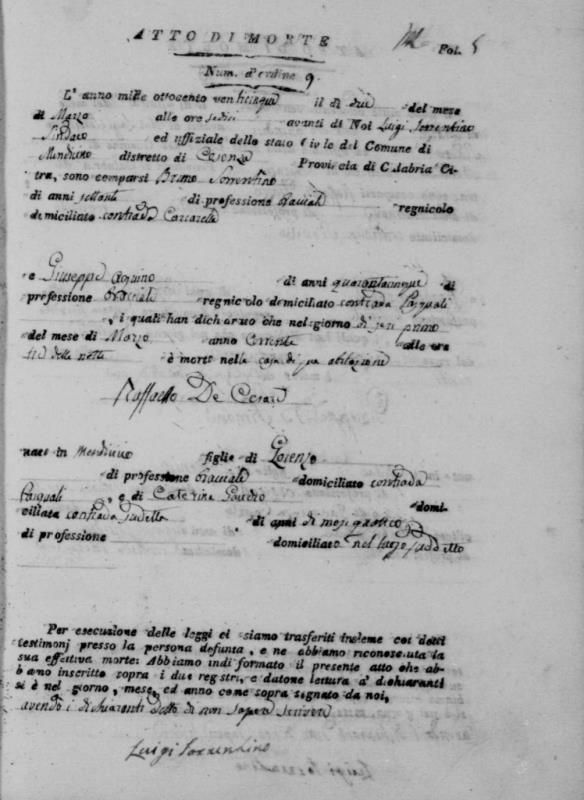 ATTO DI MORTE
Fol. 5
Num. d'ordine 9.
L'anno mille ottocento venticinque il dì due del mese
di Marzo alle ore sedici avanti di Noi Luigi Sorrentino
Sindaco ed uffiziale dello stato Civile del Comune di
Mendicino distretto di Cosenza Provincia di Calabria Ci-
tra, sono comparsi Bruno Sorrentino
di anni settanta di professione bracciale regnicolo
domiciliato contrada
e Giuseppe Aquino di anni quarantacinque di
professione bracciale regnicolo domiciliato contrada Pasquali
, i quali han dichiarato che nel giorno di jeri primo
del mese di Marzo anno corrente alle ore
tre della notte è morto nella casa di sua abitazione
Raffaele De Cesare
nato in Mendicino figlio di Lorenzo
di professione bracciale domiciliato contrada
Pasquali, e di Caterina domi-
ciliata contrada sudetta di anni di mesi quattro
di professione domiciliato nel luogo suddetto
Per esecuzione delle leggi ci siamo trasferiti insieme coi detti
testimonj presso la persona defunta, e ne abbiamo riconosciuta la
sua effettiva morte: Abbiamo indi formato il presente atto che ab-
biamo inscritto sopra i due registri, e datone lettura a' dichiaranti
si è nel giorno, mese, ed anno come sopra segnato da noi,
avendo i dichiaranti detto di non sapere scrivere
Luigi Sorrentino